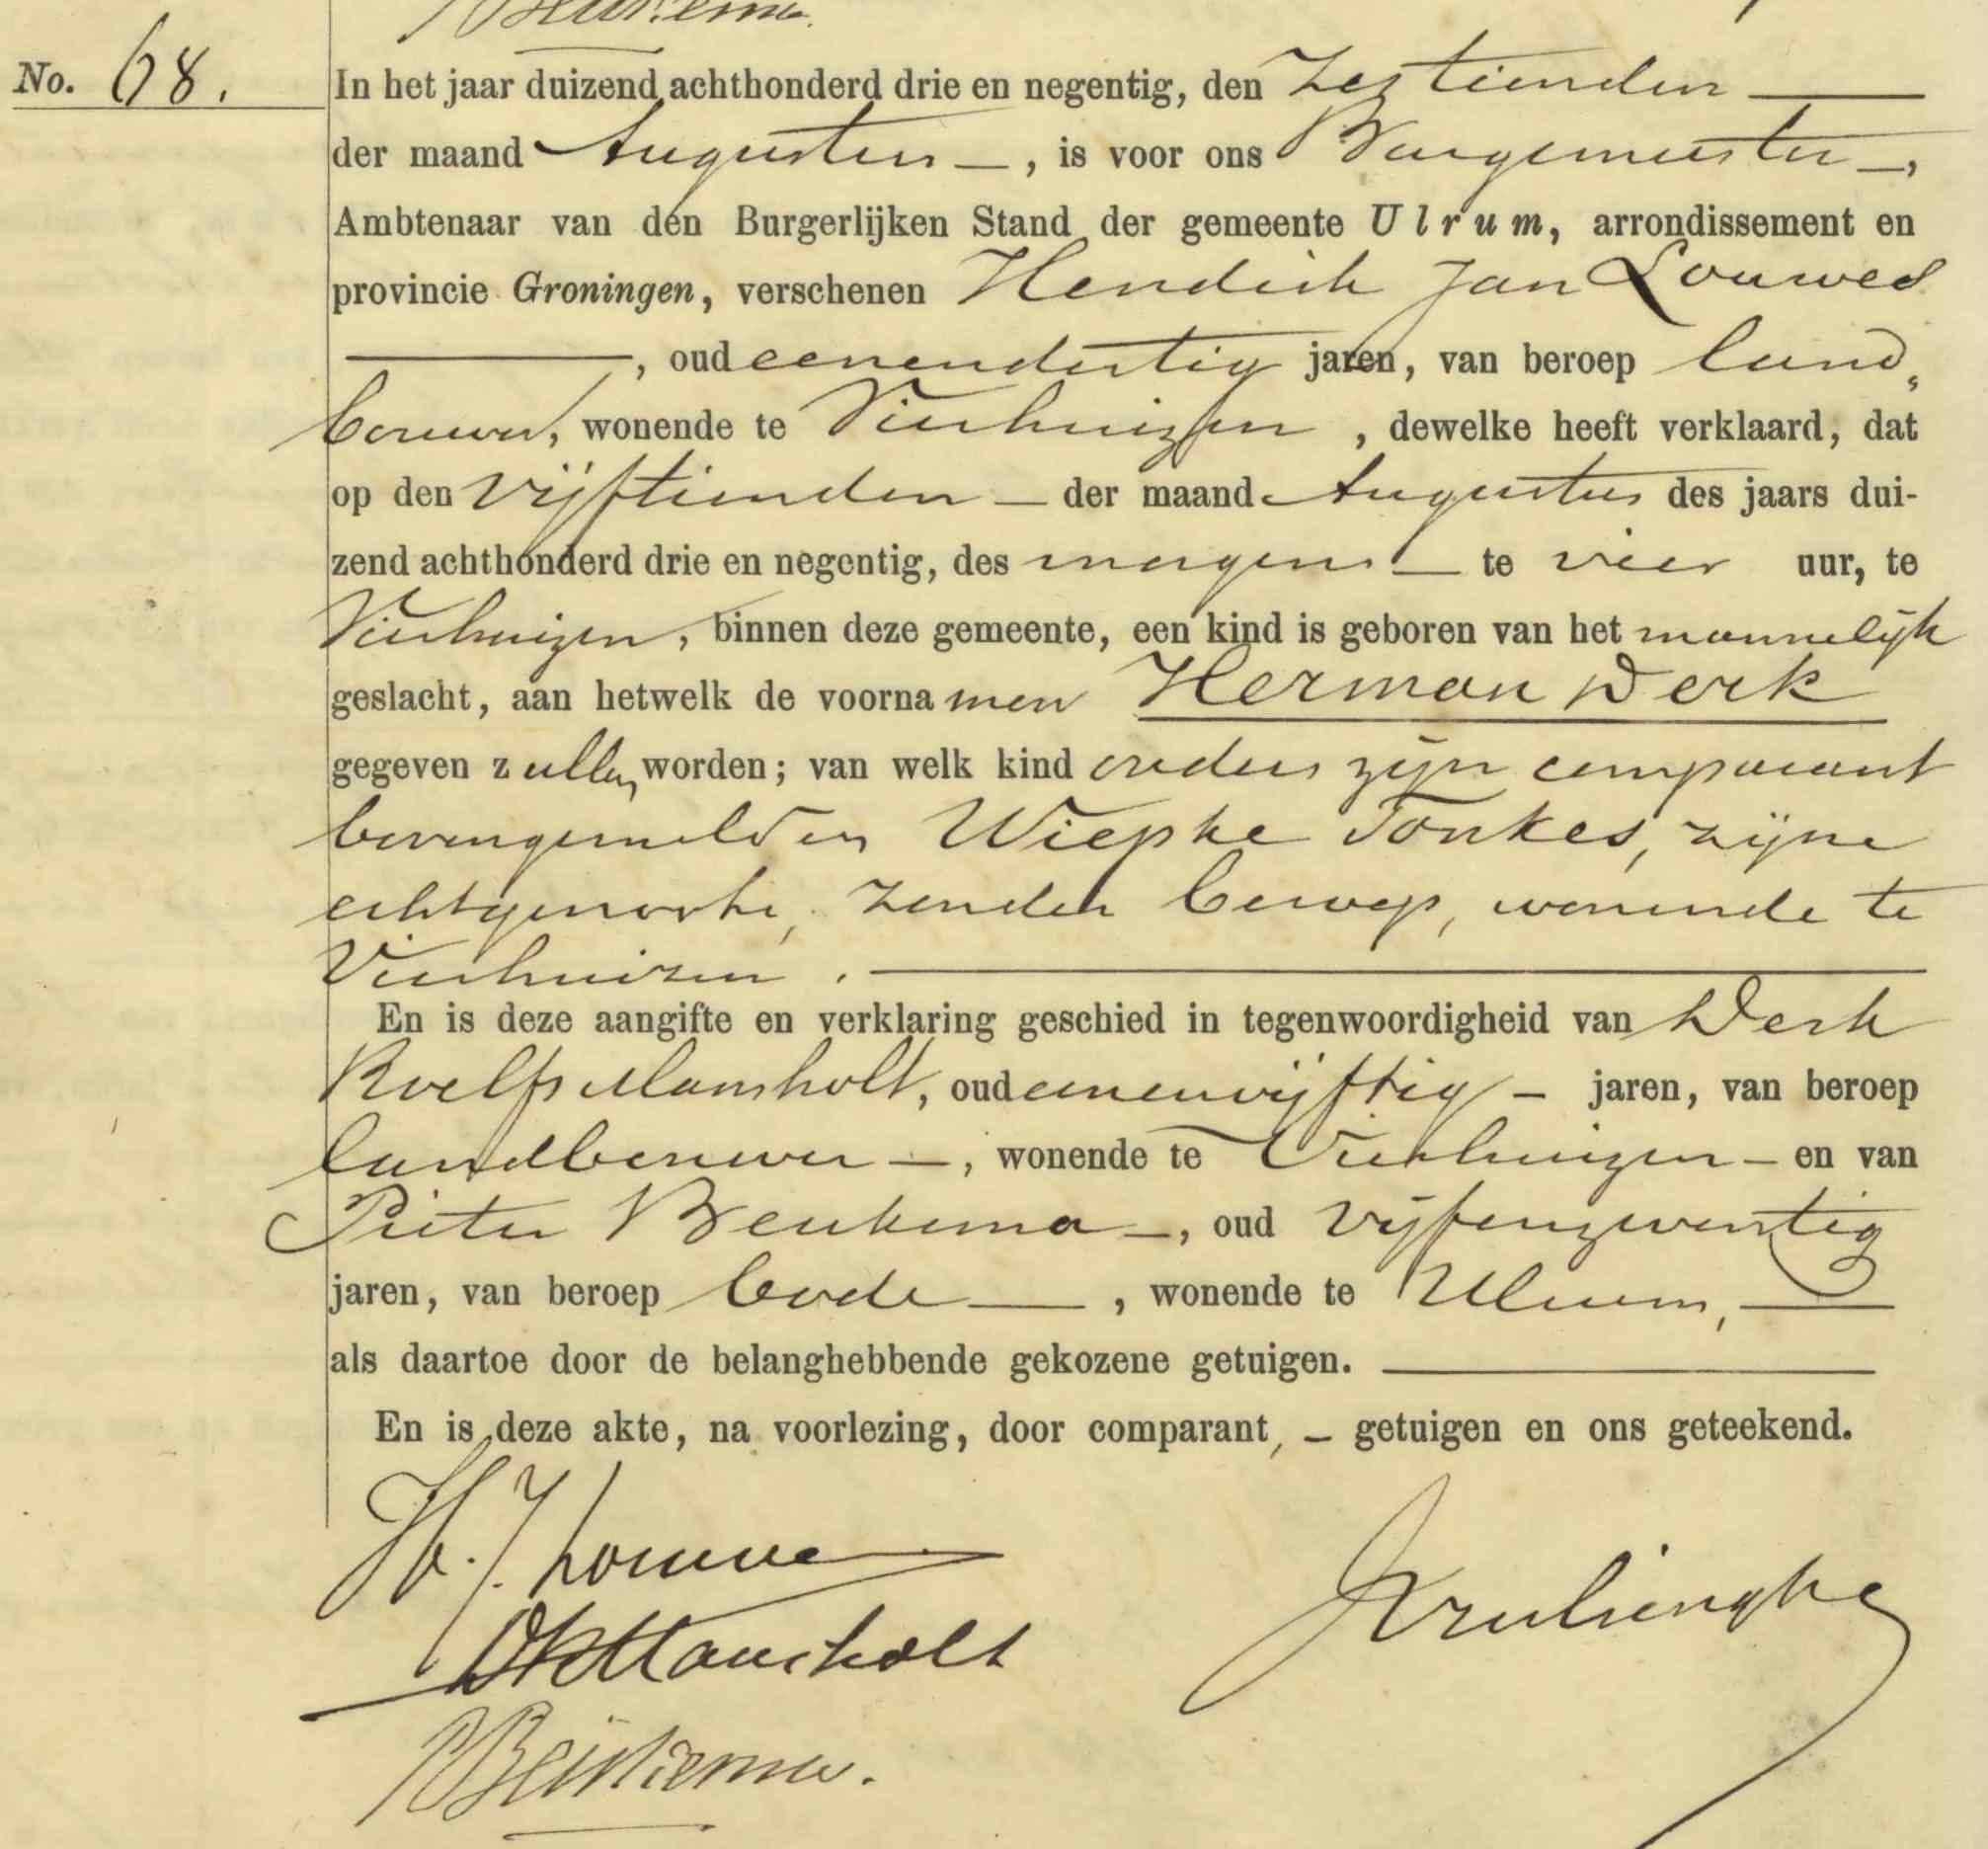 Beukema.
No. 68. In het jaar duizend achthonderd drie en negentig, den Zestienden
der maand Augustus, is voor ons Burgemeester,
Ambtenaar van den Burgerlijken Stand der gemeente Ulrum, arrondissement en
provincie Groningen, verschenen Hendrik Jan Louwes
, oud eenendertig jaren, van beroep land„
bouwer, wonende te Vierhuizen, dewelke heeft verklaard, dat
op den vijftienden der maand Augustus des jaars dui-
zend achthonderd drie en negentig, des morgens te vier uur, te
Vierhuizen, binnen deze gemeente, een kind is geboren van het mannelijk
geslacht, aan hetwelk de voornamen Herman Derk
gegeven zullen worden; van welk kind ouders zijn comparant
bovengemeld en Wiepke Tonkes, zijne
echtgenoote, zonder beroep, wonende te
Vierhuizen.
En is deze aangifte en verklaring geschied in tegenwoordigheid van Derk
Roelfs Mansholt, oud eenenvijftig jaren, van beroep
landbouwer, wonende te Vierhuizen en van
Pieter Beukema, oud vijfenzwentig
jaren, van beroep bode, wonende te Ulrum,
als daartoe door de belanghebbende gekozene getuigen.
En is deze akte, na voorlezing, door comparant, getuigen en ons geteekend.
H. J. Louwes
DRMansholt
PBeukema.